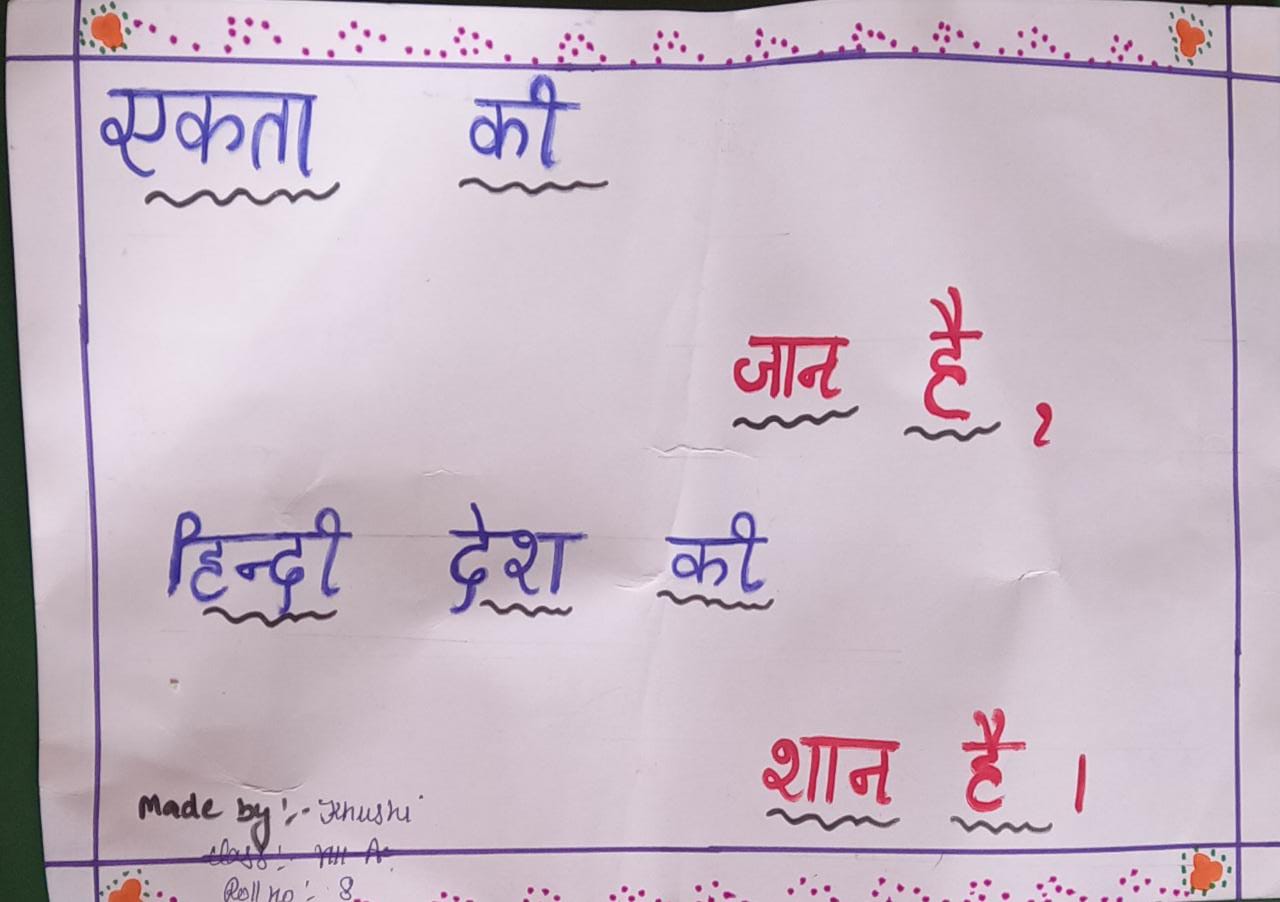 एकता की
जान है,
हिन्दी देश की
शान है।
Made by :- Khushi
class :- VIII A
Roll no :- 8